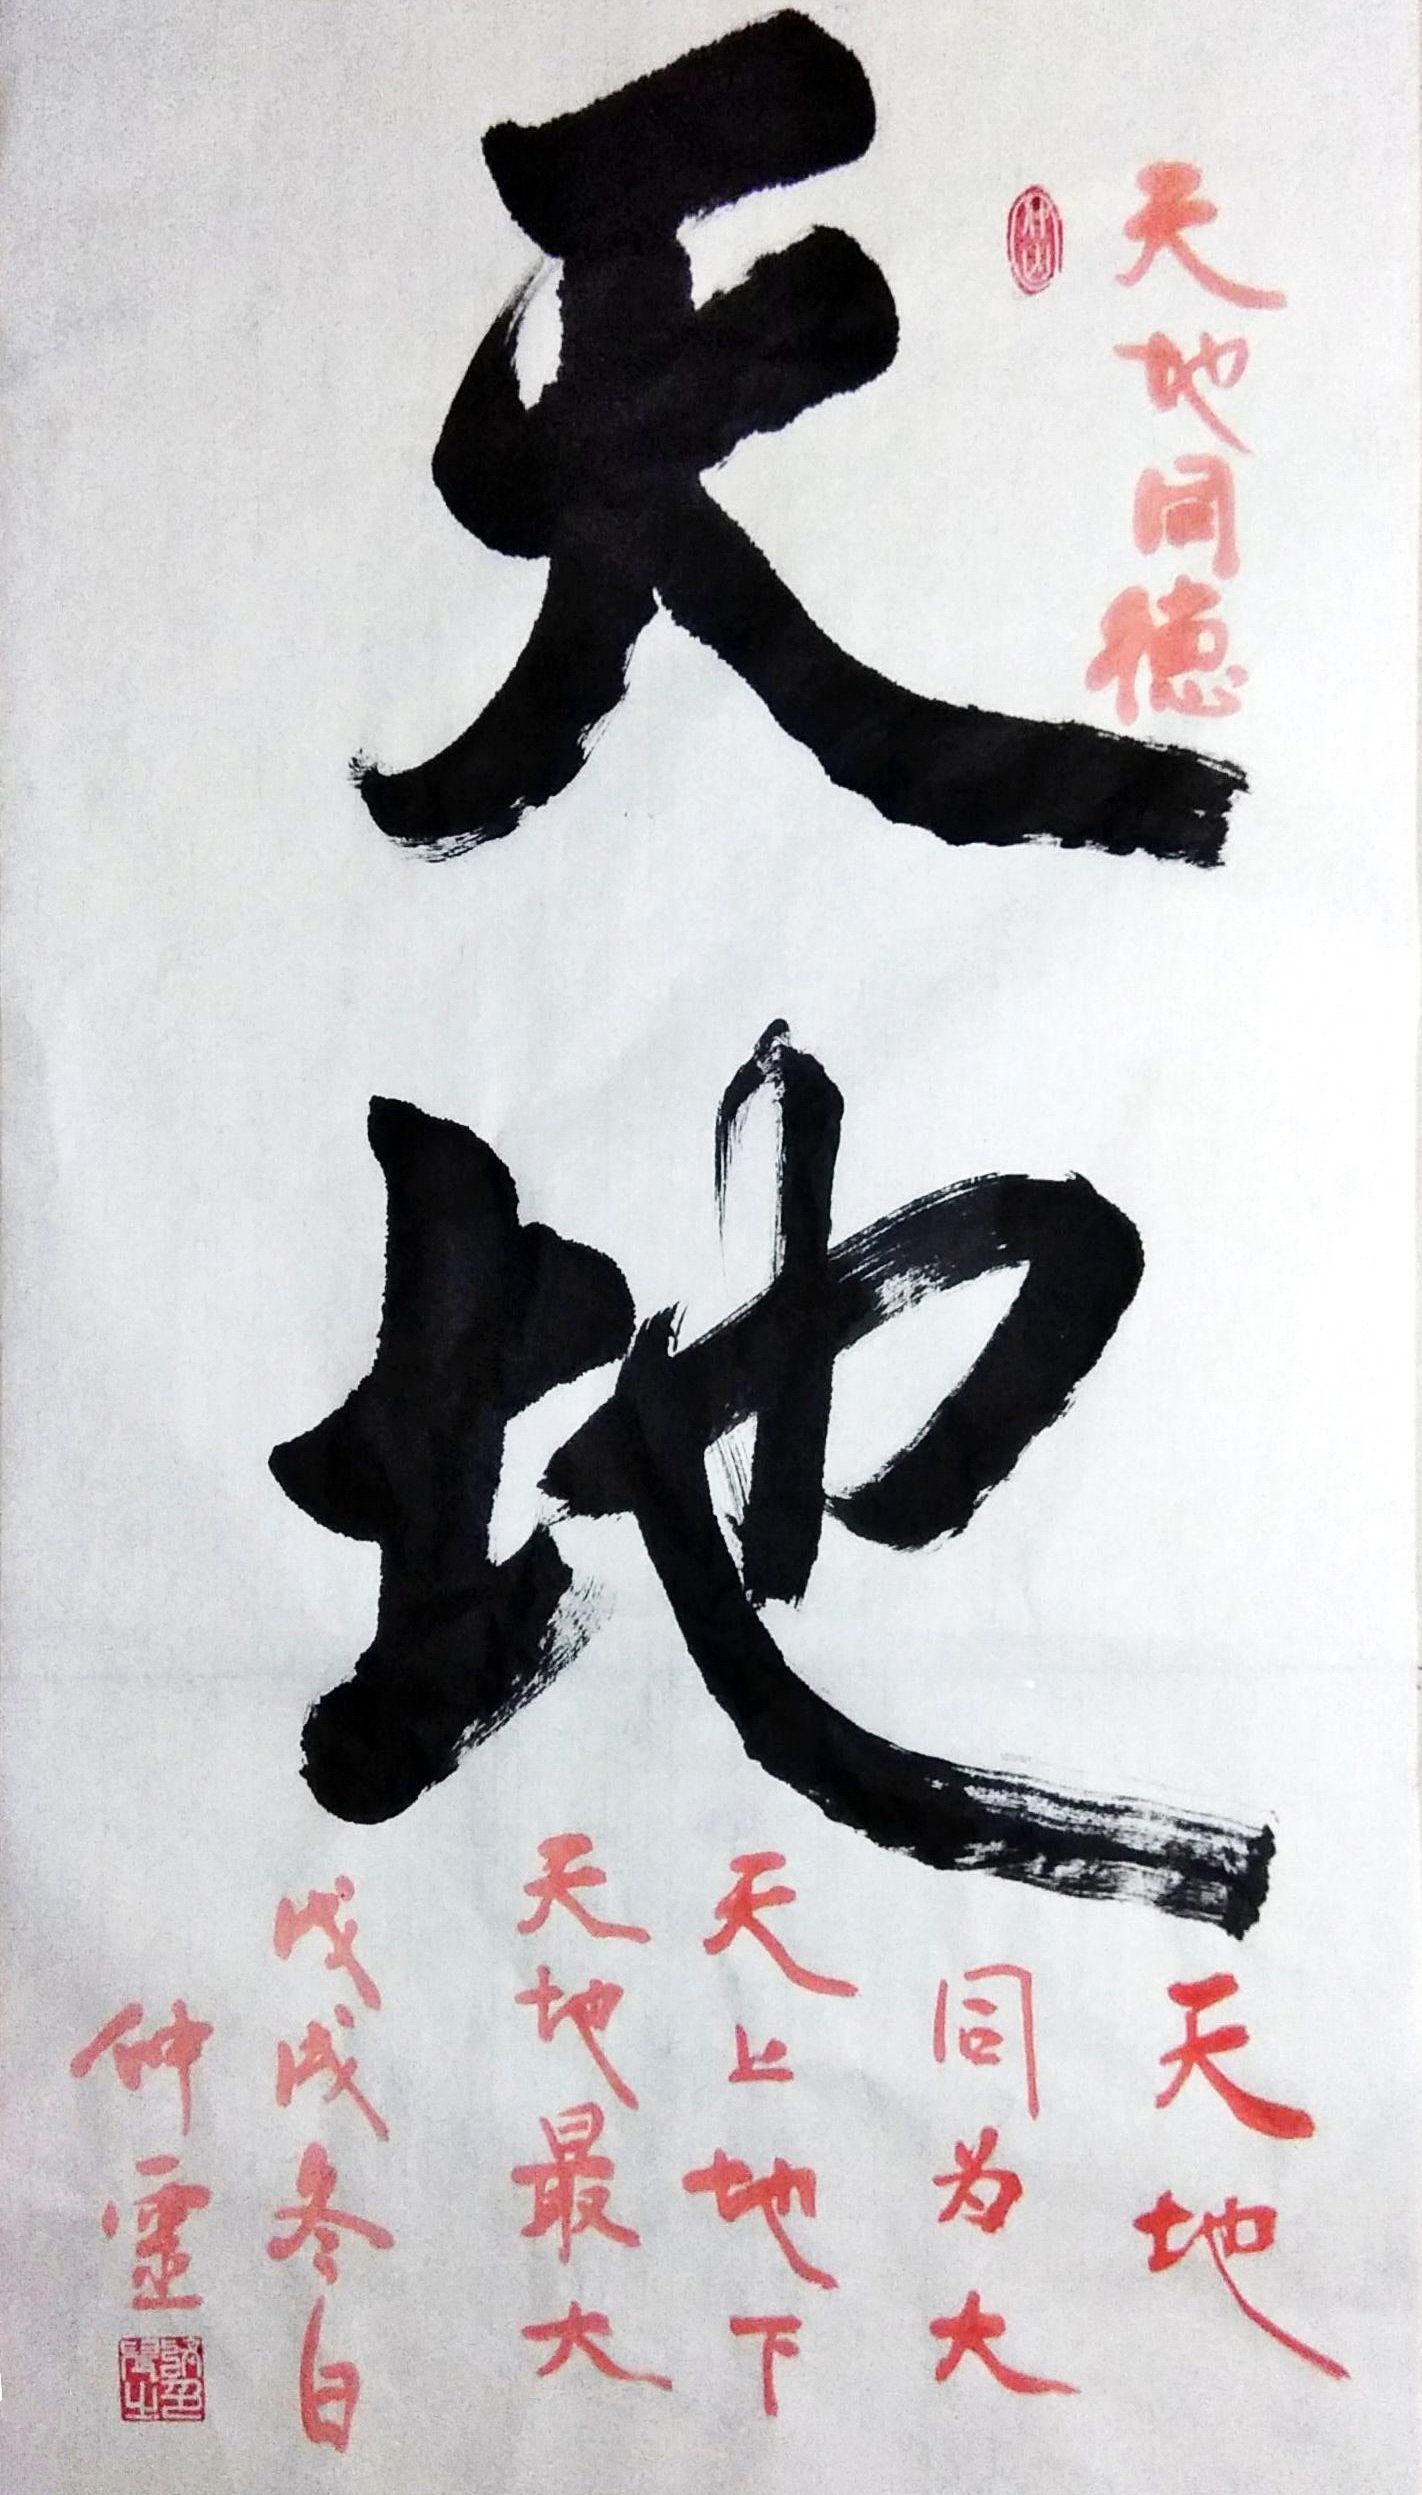 天地
天地同德
天地
同为大
天上地下
天地最大
戊戌冬日
仲靈